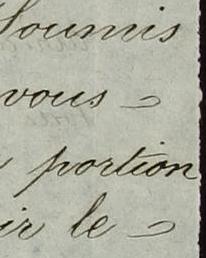 Soumis
vous
portion
ir le